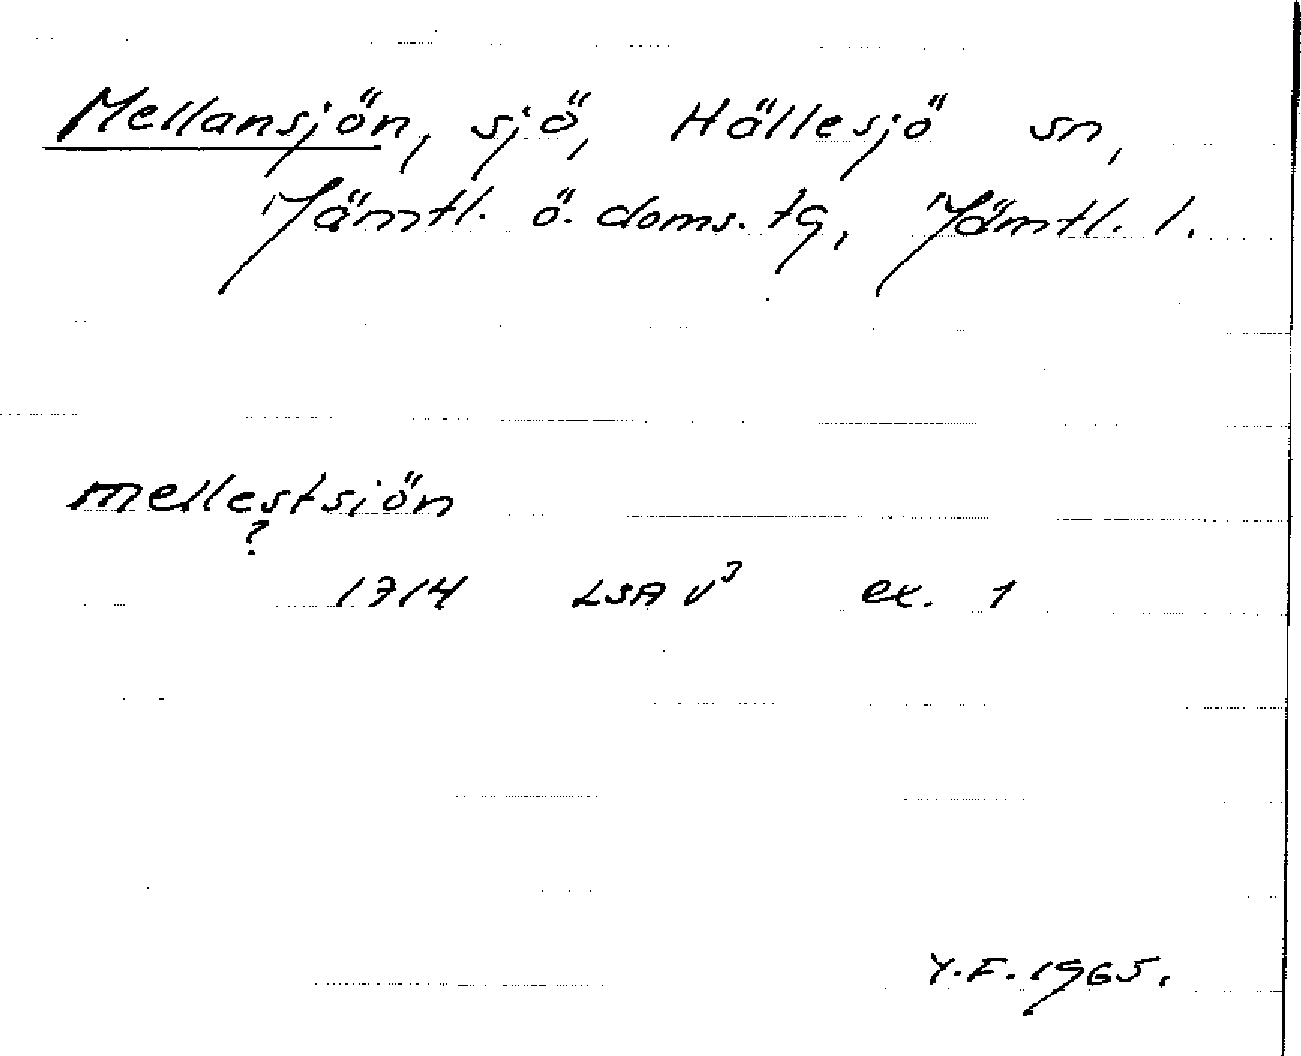 Mellansjön, sjö, Hällesjö sn,
Jämtl. ö. doms. tg, Jämtl. l.
mellestsiön
?
1714 LSA V³ ex. 1
Y.F. 1965.